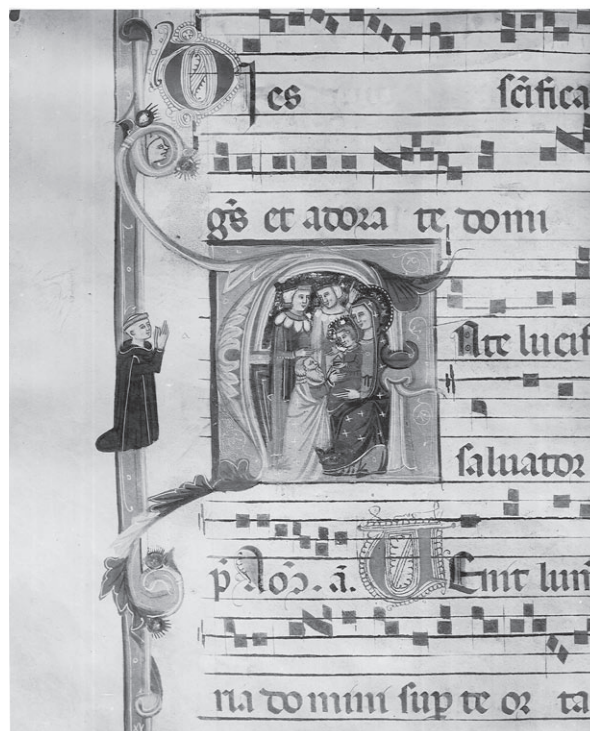 Oēs scīfica
gr̄s et adora te domi
Ante lucif
saluator
p̄ Noct̄. a. Uenit lum
ria domini sup̄ te or ta